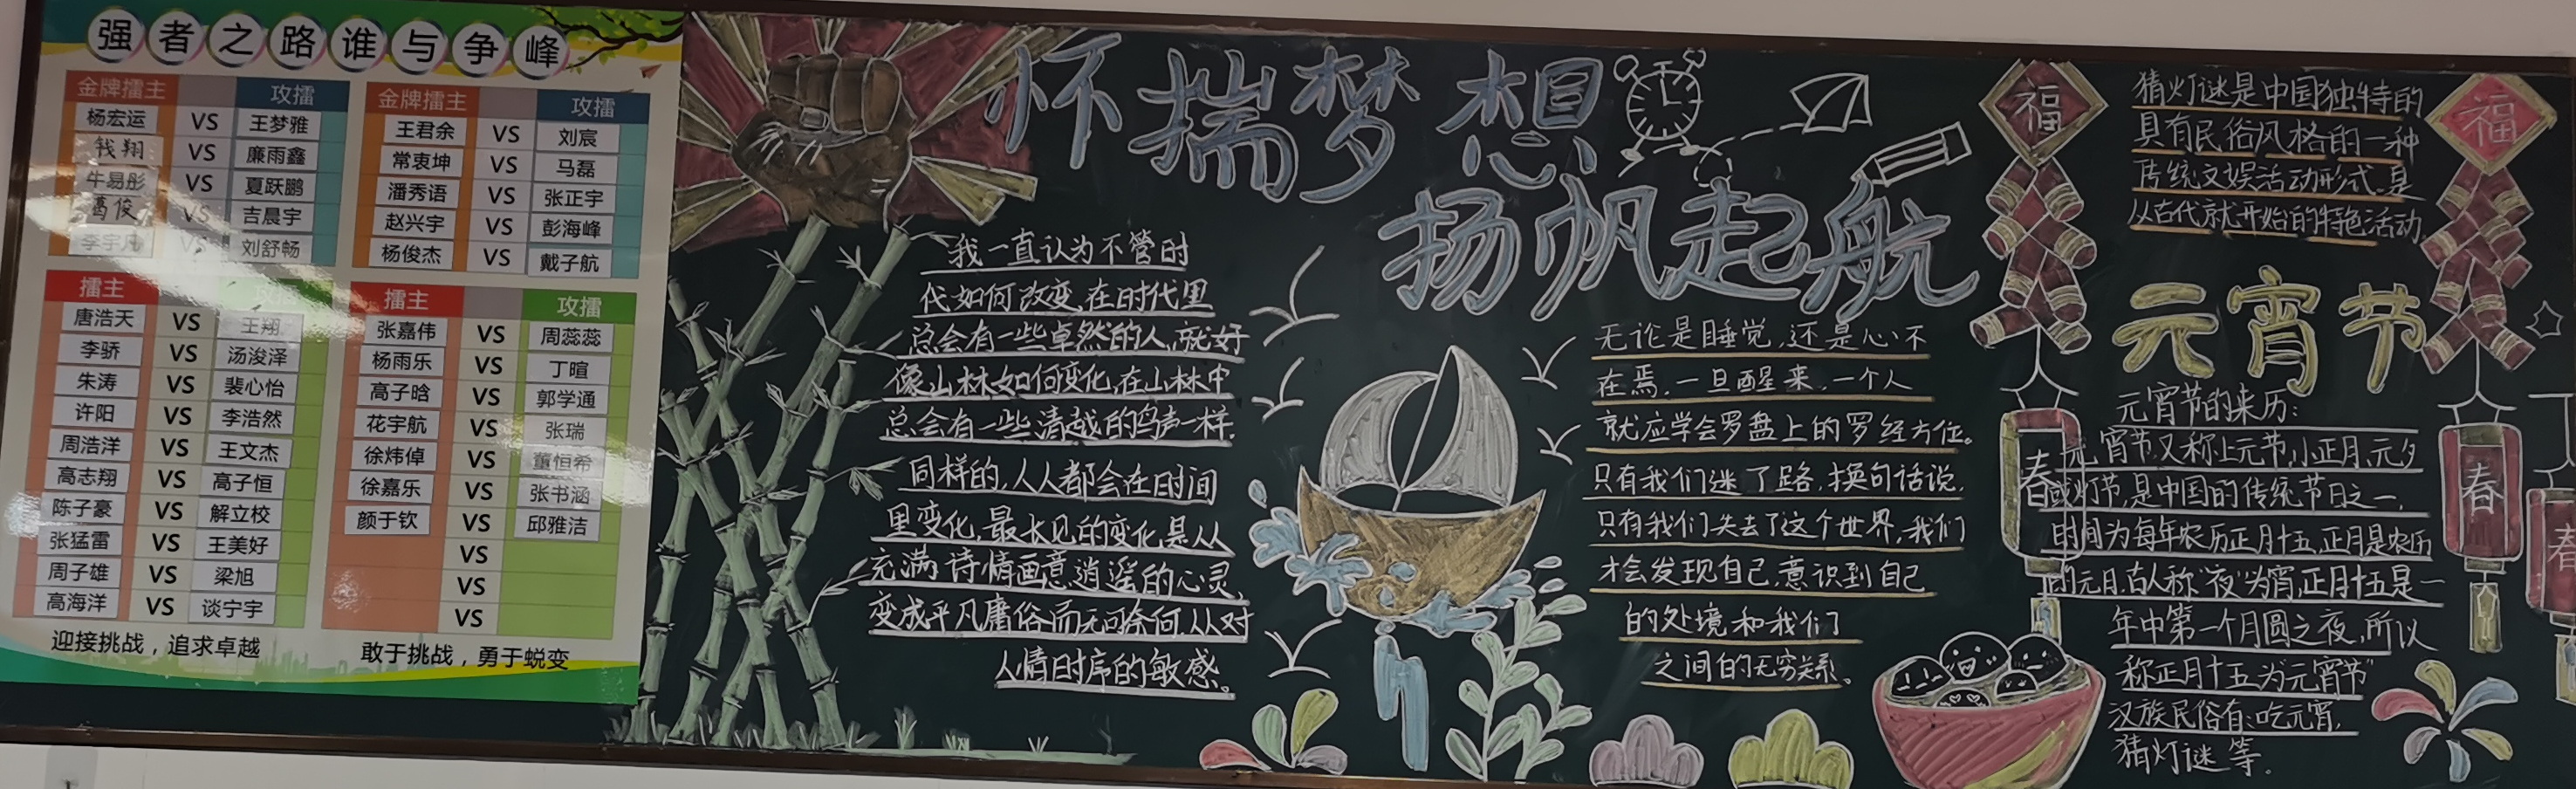 强者之路谁与争峰
金牌擂主 攻擂
杨宏运 VS 王梦雅
钱翔 VS 廉雨鑫
牛易彤 VS 夏跃鹏
葛俊 VS 吉晨宇
李宇凡 VS 刘舒畅
金牌擂主 攻擂
王君余 VS 刘宸
常衷坤 VS 马磊
潘秀语 VS 张正宇
赵兴宇 VS 彭海峰
杨俊杰 VS 戴子航
擂主 攻擂
唐浩天 VS 王翔
李骄 VS 汤浚泽
朱涛 VS 裴心怡
许阳 VS 李浩然
周浩洋 VS 王文杰
高志翔 VS 高子恒
陈子豪 VS 解立校
张猛雷 VS 王美好
周子雄 VS 梁旭
高海洋 VS 谈宁宇
擂主 攻擂
张嘉伟 VS 周蕊蕊
杨雨乐 VS 丁暄
高子晗 VS 郭学通
花宇航 VS 张瑞
徐炜倬 VS 董恒希
徐嘉乐 VS 张书涵
颜于钦 VS 邱雅洁
VS
VS
VS
迎接挑战，追求卓越
敢于挑战，勇于蜕变
怀揣梦想
扬帆起航
我一直认为不管时
代如何改变,在时代里
总会有一些卓然的人,就好
像山林如何变化,在山林中
总会有一些清越的鸟声一样.
同样的,人人都会在时间
里变化,最长见的变化是从
充满诗情画意逍遥的心灵,
变成平凡庸俗而无可奈何,从对
人情时序的敏感。
无论是睡觉,还是心不
在焉,一旦醒来,一个人
就应学会罗盘上的罗经方位。
只有我们迷了路,换句话说,
只有我们失去了这个世界,我们
才会发现自己,意识到自己
的处境和我们
之间的无穷关系。
福
春
猜灯谜是中国独特的
具有民俗风格的一种
传统文娱活动形式.是
从古代就开始的特色活动.
福
春
春
元宵节
元宵节的来历:
元宵节又称上元节,小正月,元夕
或灯节,是中国的传统节日之一,
时间为每年农历正月十五,正月是农历
的元月,古人称"夜"为宵,正月十五是一
年中第一个月圆之夜,所以
称正月十五为元宵节"
汉族民俗有:吃元宵,
猜灯谜等.